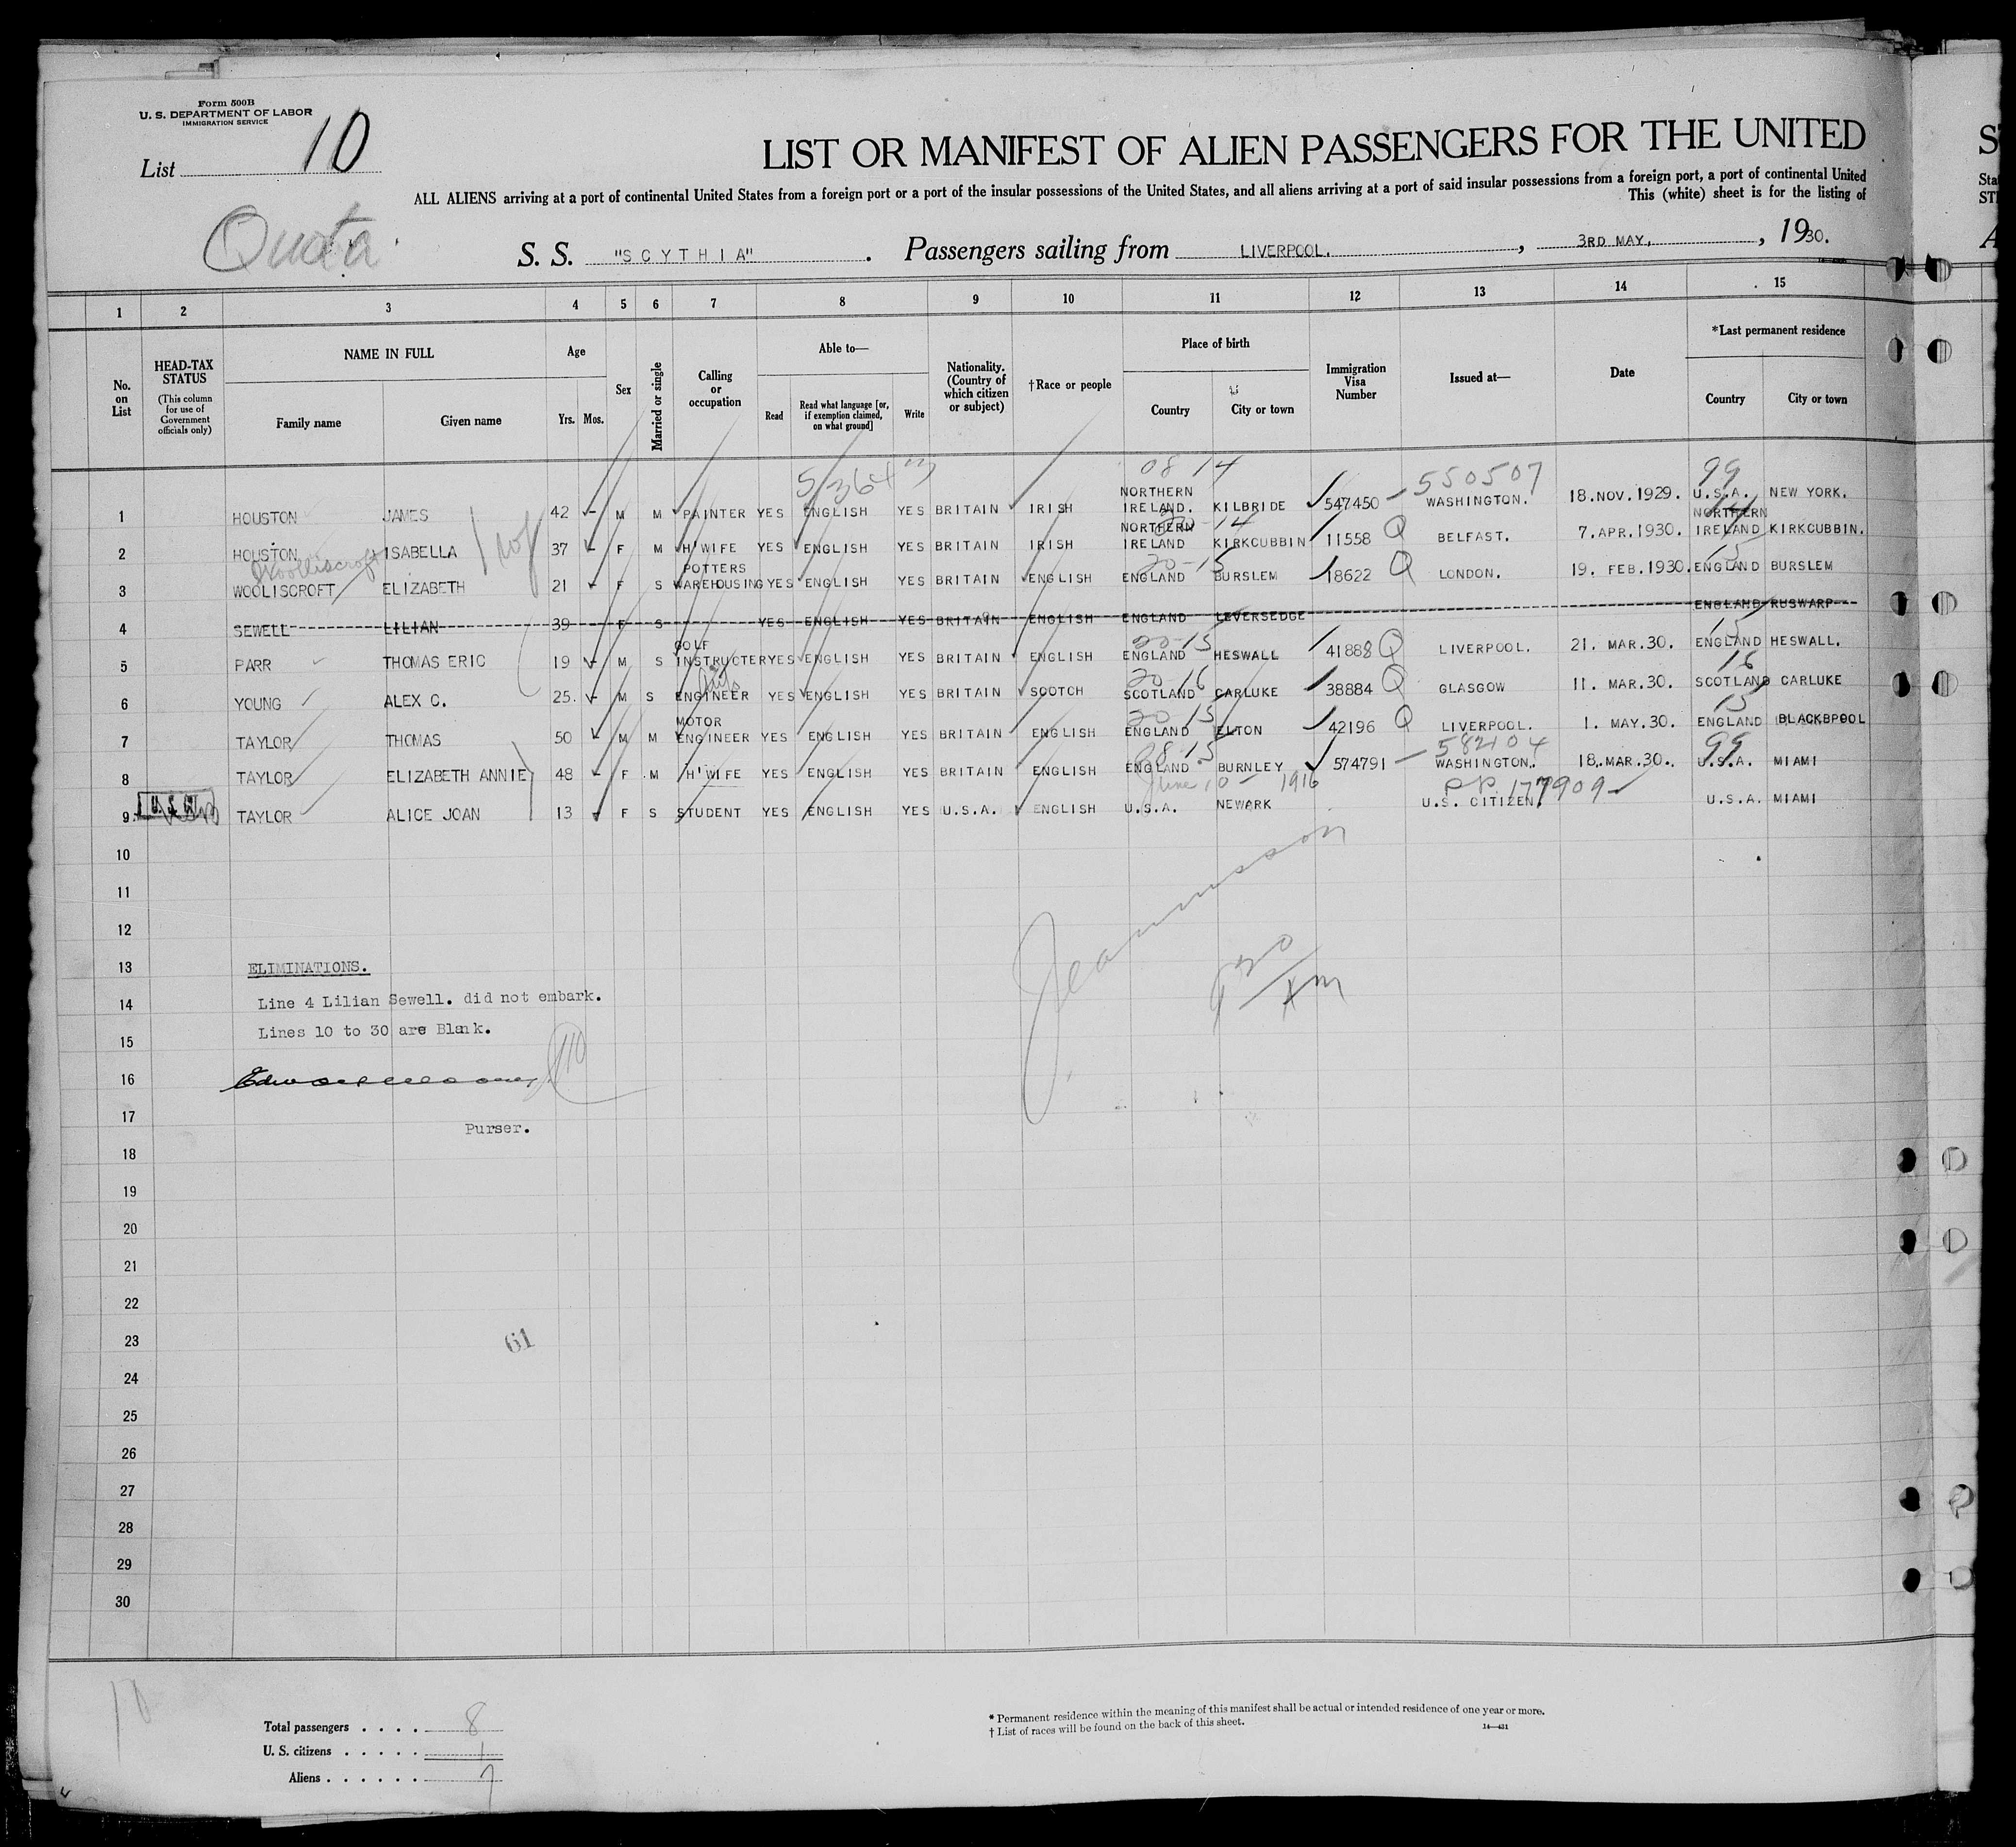 Form 500B
U. S. DEPARTMENT OF LABOR
IMMIGRATION SERVICE
List 10
LIST OR MANIFEST OF ALIEN PASSENGERS FOR THE UNITED
ALL ALIENS arriving at a port of continental United States from a foreign port or a port of the insular possessions of the United States, and all aliens arriving at a port of said insular possessions from a foreign port, a port of continental United
This (white) sheet is for the listing of
Quota
S. S. "SCYTHIA" . Passengers sailing from LIVERPOOL. , 3RD MAY, , 1930.
1 2 3 4 5 6 7 8 9 10 11 12 13 14 15
No. on List
HEAD-TAX STATUS (This column for use of Government officials only)
NAME IN FULL
Family name Given name
Age
Yrs. Mos.
Sex
Married or single
Calling or occupation
Able to—
Read Read what language [or, if exemption claimed, on what ground] Write
Nationality. (Country of which citizen or subject)
†Race or people
Place of birth
Country City or town
Immigration Visa Number
Issued at—
Date
*Last permanent residence
Country City or town
5/364 08 14 550507 99
1 HOUSTON JAMES 42 - M M PAINTER YES ENGLISH YES BRITAIN IRISH NORTHERN IRELAND. KILBRIDE 547450 WASHINGTON. 18.NOV.1929. U.S.A. NEW YORK.
20-14 14
2 HOUSTON ISABELLA 37 - F M H'WIFE YES ENGLISH YES BRITAIN IRISH NORTHERN IRELAND KIRKCUBBIN 11558 Q BELFAST. 7.APR.1930. NORTHERN IRELAND KIRKCUBBIN.
Woolliscroft 20-15 15
3 WOOLISCROFT ELIZABETH 21 - F S POTTERS WAREHOUSING YES ENGLISH YES BRITAIN ENGLISH ENGLAND BURSLEM 18622 Q LONDON. 19. FEB.1930. ENGLAND BURSLEM
4 SEWELL LILIAN 39 F S YES ENGLISH YES BRITAIN ENGLISH ENGLAND LEVERSEDGE ENGLAND RUSWARP
20-15 15
5 PARR THOMAS ERIC 19 - M S GOLF INSTRUCTER YES ENGLISH YES BRITAIN ENGLISH ENGLAND HESWALL 41888 Q LIVERPOOL. 21. MAR.30. ENGLAND HESWALL.
20-16 16
6 YOUNG ALEX C. 25. - M S ENGINEER YES ENGLISH YES BRITAIN SCOTCH SCOTLAND CARLUKE 38884 Q GLASGOW 11. MAR.30. SCOTLAND CARLUKE
20 15 15
7 TAYLOR THOMAS 50 - M M MOTOR ENGINEER YES ENGLISH YES BRITAIN ENGLISH ENGLAND ELTON 42196 Q LIVERPOOL. 1. MAY.30. ENGLAND BLACKBPOOL
08.15 582104 99
8 TAYLOR ELIZABETH ANNIE 48 - F M H'WIFE YES ENGLISH YES BRITAIN ENGLISH ENGLAND BURNLEY 574791 WASHINGTON. 18.MAR.30. U.S.A. MIAMI
June 10 - 1916 P.P. 177909
9 TAYLOR ALICE JOAN 13 - F S STUDENT YES ENGLISH YES U.S.A. ENGLISH U.S.A. NEWARK U.S. CITIZEN U.S.A. MIAMI
10
11
12
13 ELIMINATIONS.
14 Line 4 Lilian Sewell. did not embark.
15 Lines 10 to 30 are Blank.
16 110
17 Purser.
18
19
20
21
22
23 61
24
25
26
27
28
29
30
10
Total passengers . . . . 8
U. S. citizens . . . . . 1
Aliens . . . . . . 7
* Permanent residence within the meaning of this manifest shall be actual or intended residence of one year or more.
† List of races will be found on the back of this sheet.